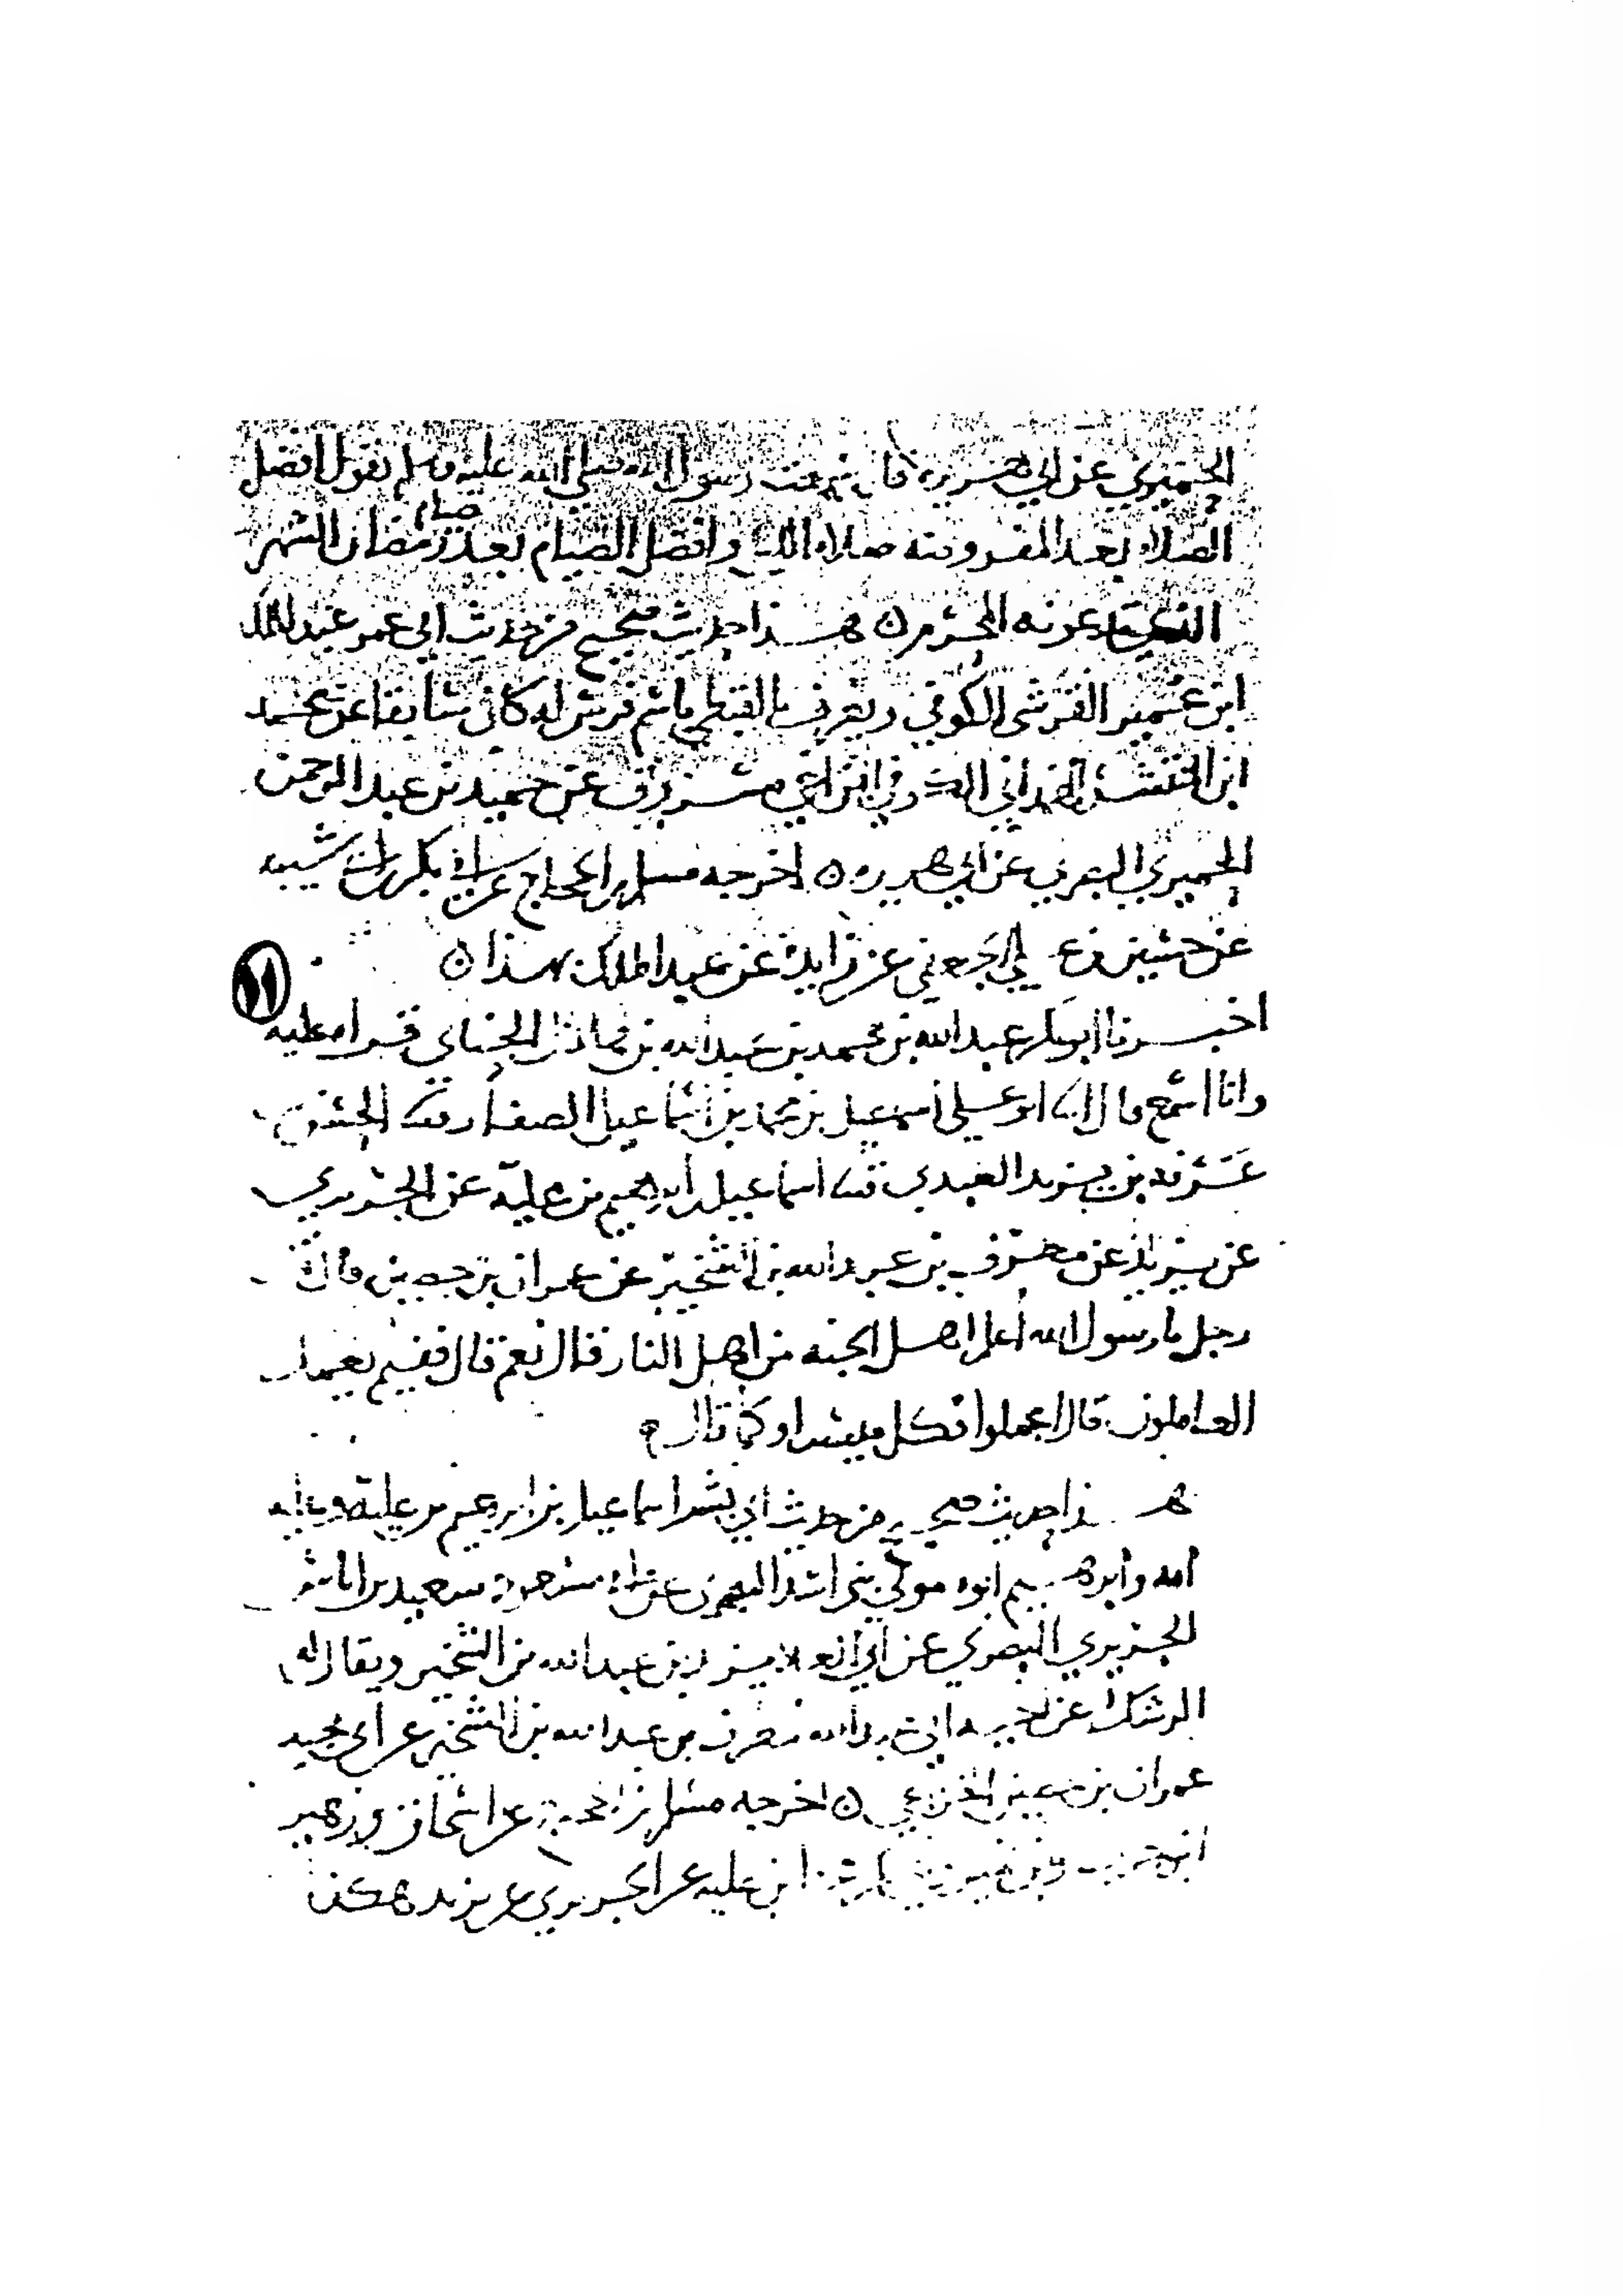 الحميري عن ابي هريره قال سمعت رسول الله صلى الله عليه وسلم يقول افضل
صيام
الصلاه بعد المفروضه صلاه الليل وافضل الصيام بعد رمضان الشهر
الذي تدعونه المحرم ۝ هـذا حديث صحيح من حديث ابي عمر عبد الملك
ابن عمير القرشي الكوفي ويعرف بالقبطي باسم فرس له كان سابقا عن محمد
ابن المنتشر الهمداني الكوفي ابن اخي مسروق عن حميد بن عبد الرحمن
الحميري البصري عن ابي هريره ۝ اخرجه مسلم بن الحجاج عن ابي بكر بن ابي شيبه
عن حسين بن علي الجعفي عن زايدة عن عبد الملك بهذا ۝
اخبـرنا ابو بكر عبد الله بن محمد بن عبد الله بن الحناي قراه عليه
وانا اسمع قال ابنا ابو علي اسمعيل بن محمد بن اسماعيل الصفار ثنا الحسن
بن عرفه بن يزيد العبدي ثنا اسماعيل بن ابرهيم بن علية عن الجريري
عن يزيد عن مطرف بن عبد الله بن الشخير عن عمران بن حصين قال قال
رجل يا رسول الله اعلم اهل الجنه من اهل النار قال نعم قال ففيم يعمل
العاملون قال اعملوا فكل ميسر او كما قال
هـذا حديث صحيح من حديث ابي بشر اسماعيل بن ابرهيم بن علية وعليه
امه وابرهيم ابوه مولى بني اسد البصري عن ابي مسعود سعيد بن اياس
الجريري البصري عن ابي العلا يزيد بن عبد الله بن الشخير ويقال له
الرشك عن اخيه ابي عبد الله مطرف بن عبد الله بن الشخير عن ابي نجيد
عمران بن حصين الخزاعي ۝ اخرجه مسلم بن الحجاج عن اسحاق وزهير
ابن حرب وابن نمير ابن عليه عن الجريري عن يزيد هكذا